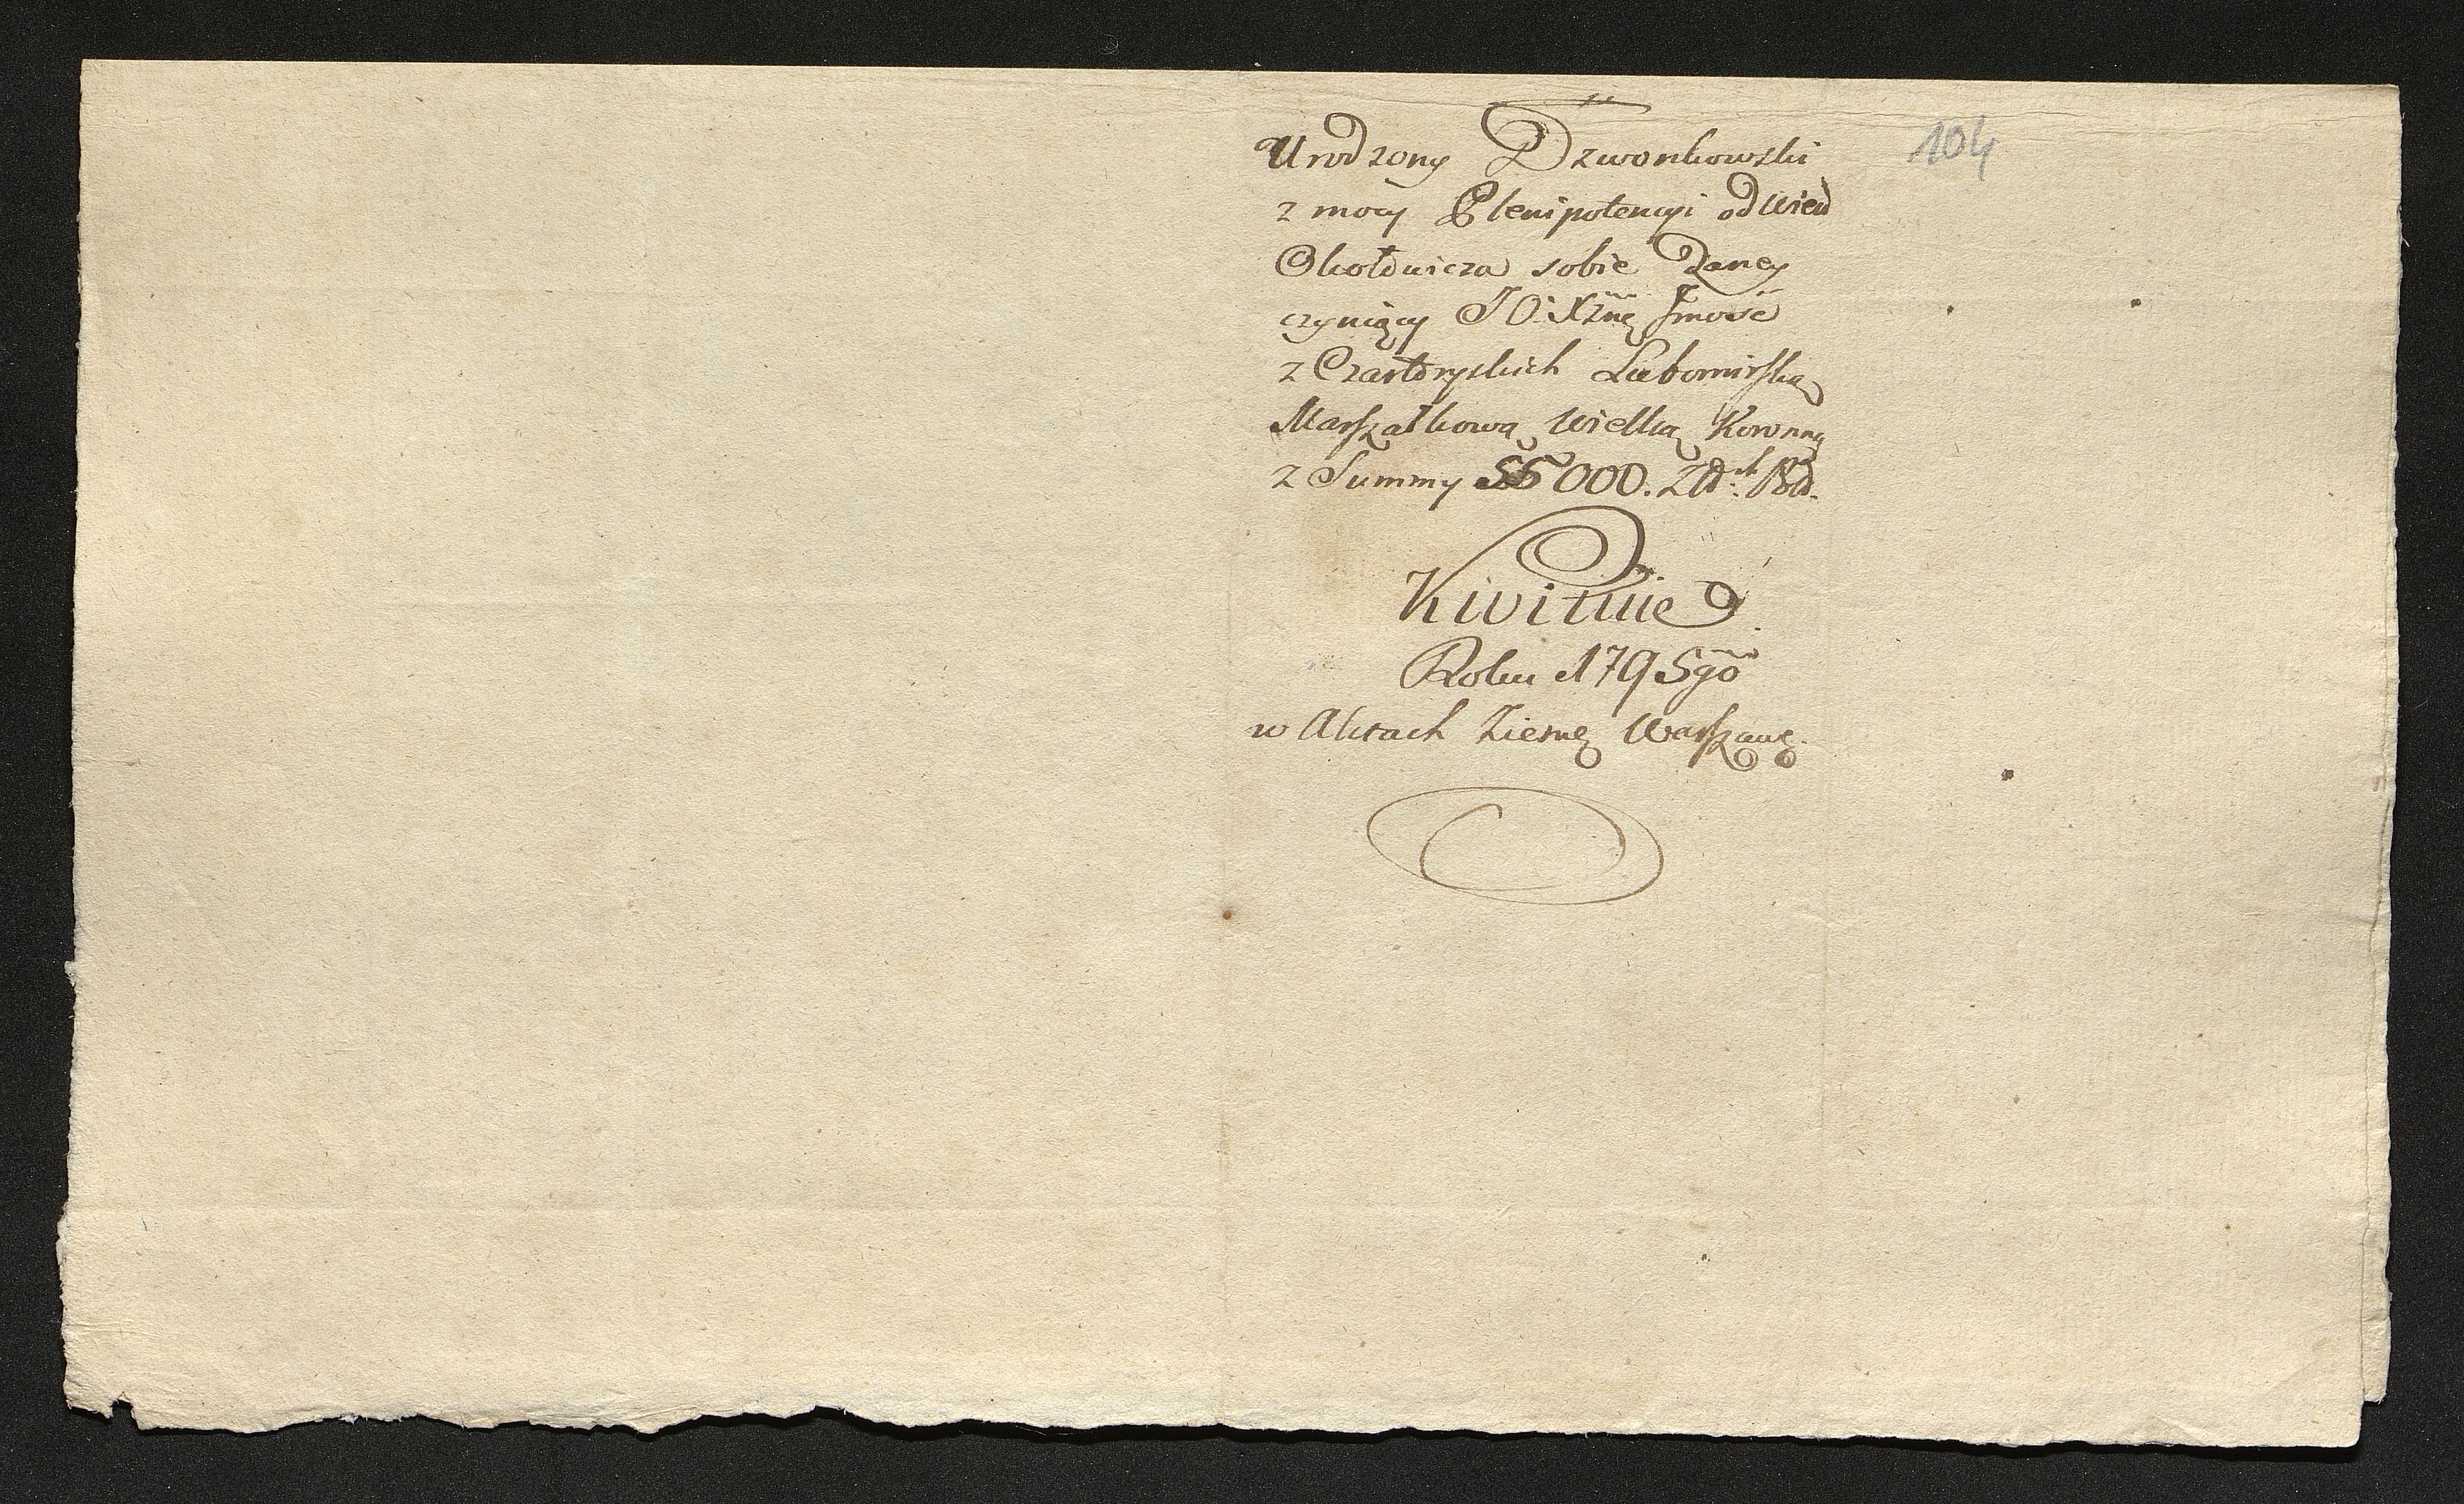 Urodzony Dzwonkowski
z mocy Plenipotencyi od Wiel
Okołowicza sobie Daney
czyniący JO: Xżnę Jmość
z Czartoryskich Lubomirską
Marszałkową Wielką Koronną
z Summy 55000. Złch Pol.
Kwituie
Roku 1795go
w Aktach Ziem. Warszaw.
104